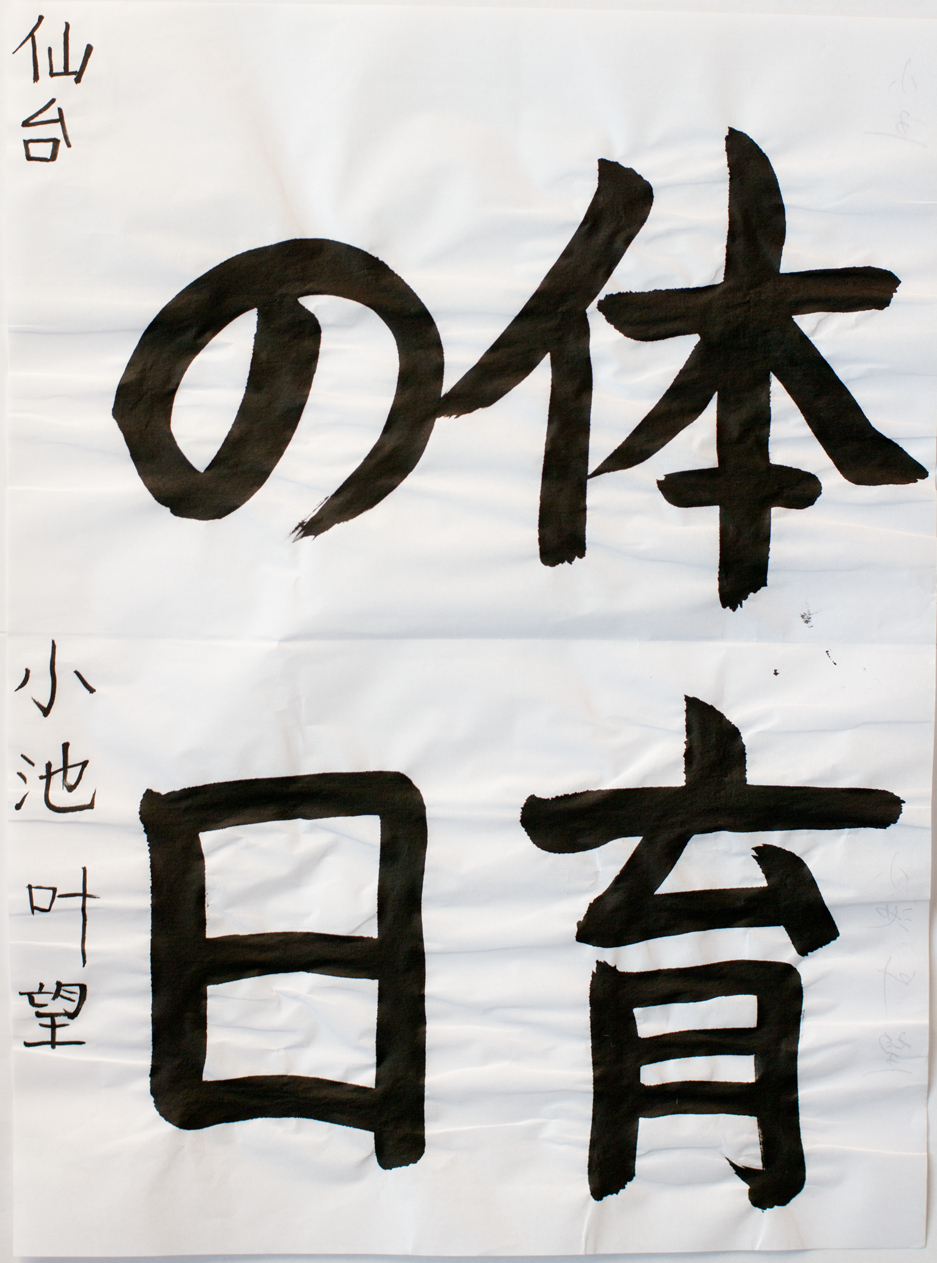 体育
の日
仙台 小池 叶望